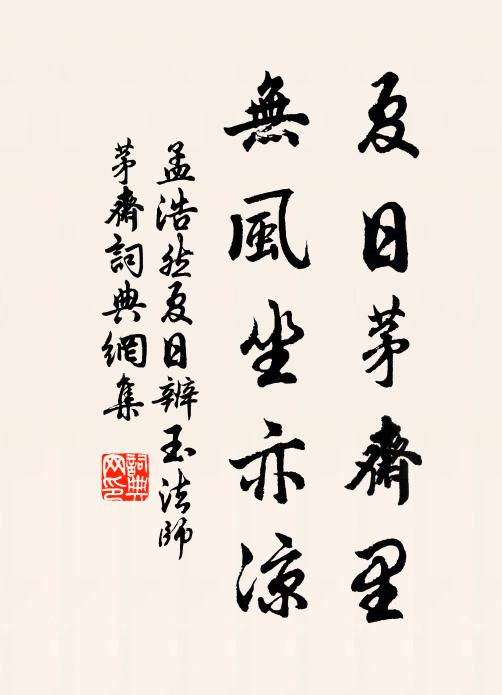 夏日茅齋里
無風坐亦凉
孟浩然夏日辨玉法師
茅齋詞典網集
詞典
网印